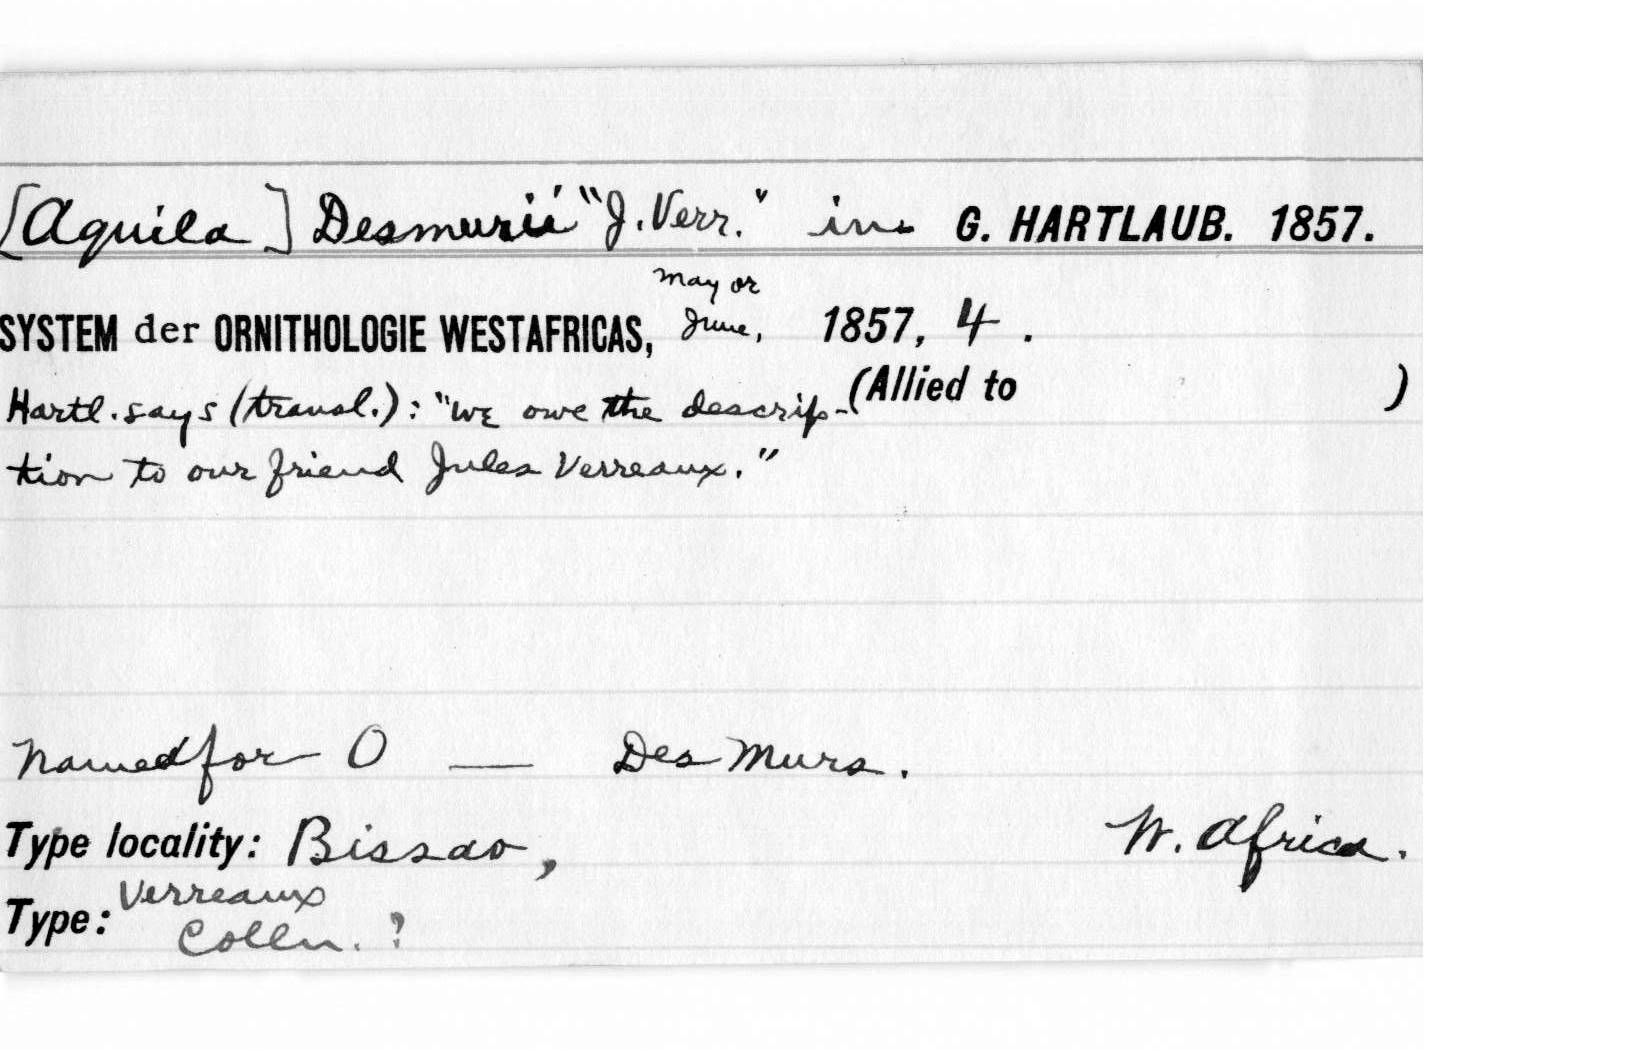 [Aquila] Desmurii "J. Verr." in G. HARTLAUB. 1857.
SYSTEM der ORNITHOLOGIE WESTAFRICAS, May or June, 1857, 4.
(Allied to )
Hartl. says (transl.): "we owe the descrip-
tion to our friend Jules Verreaux."
Named for O — Des Murs.
Type locality: Bissao, W. Africa.
Type: Verreaux
Colln. ?